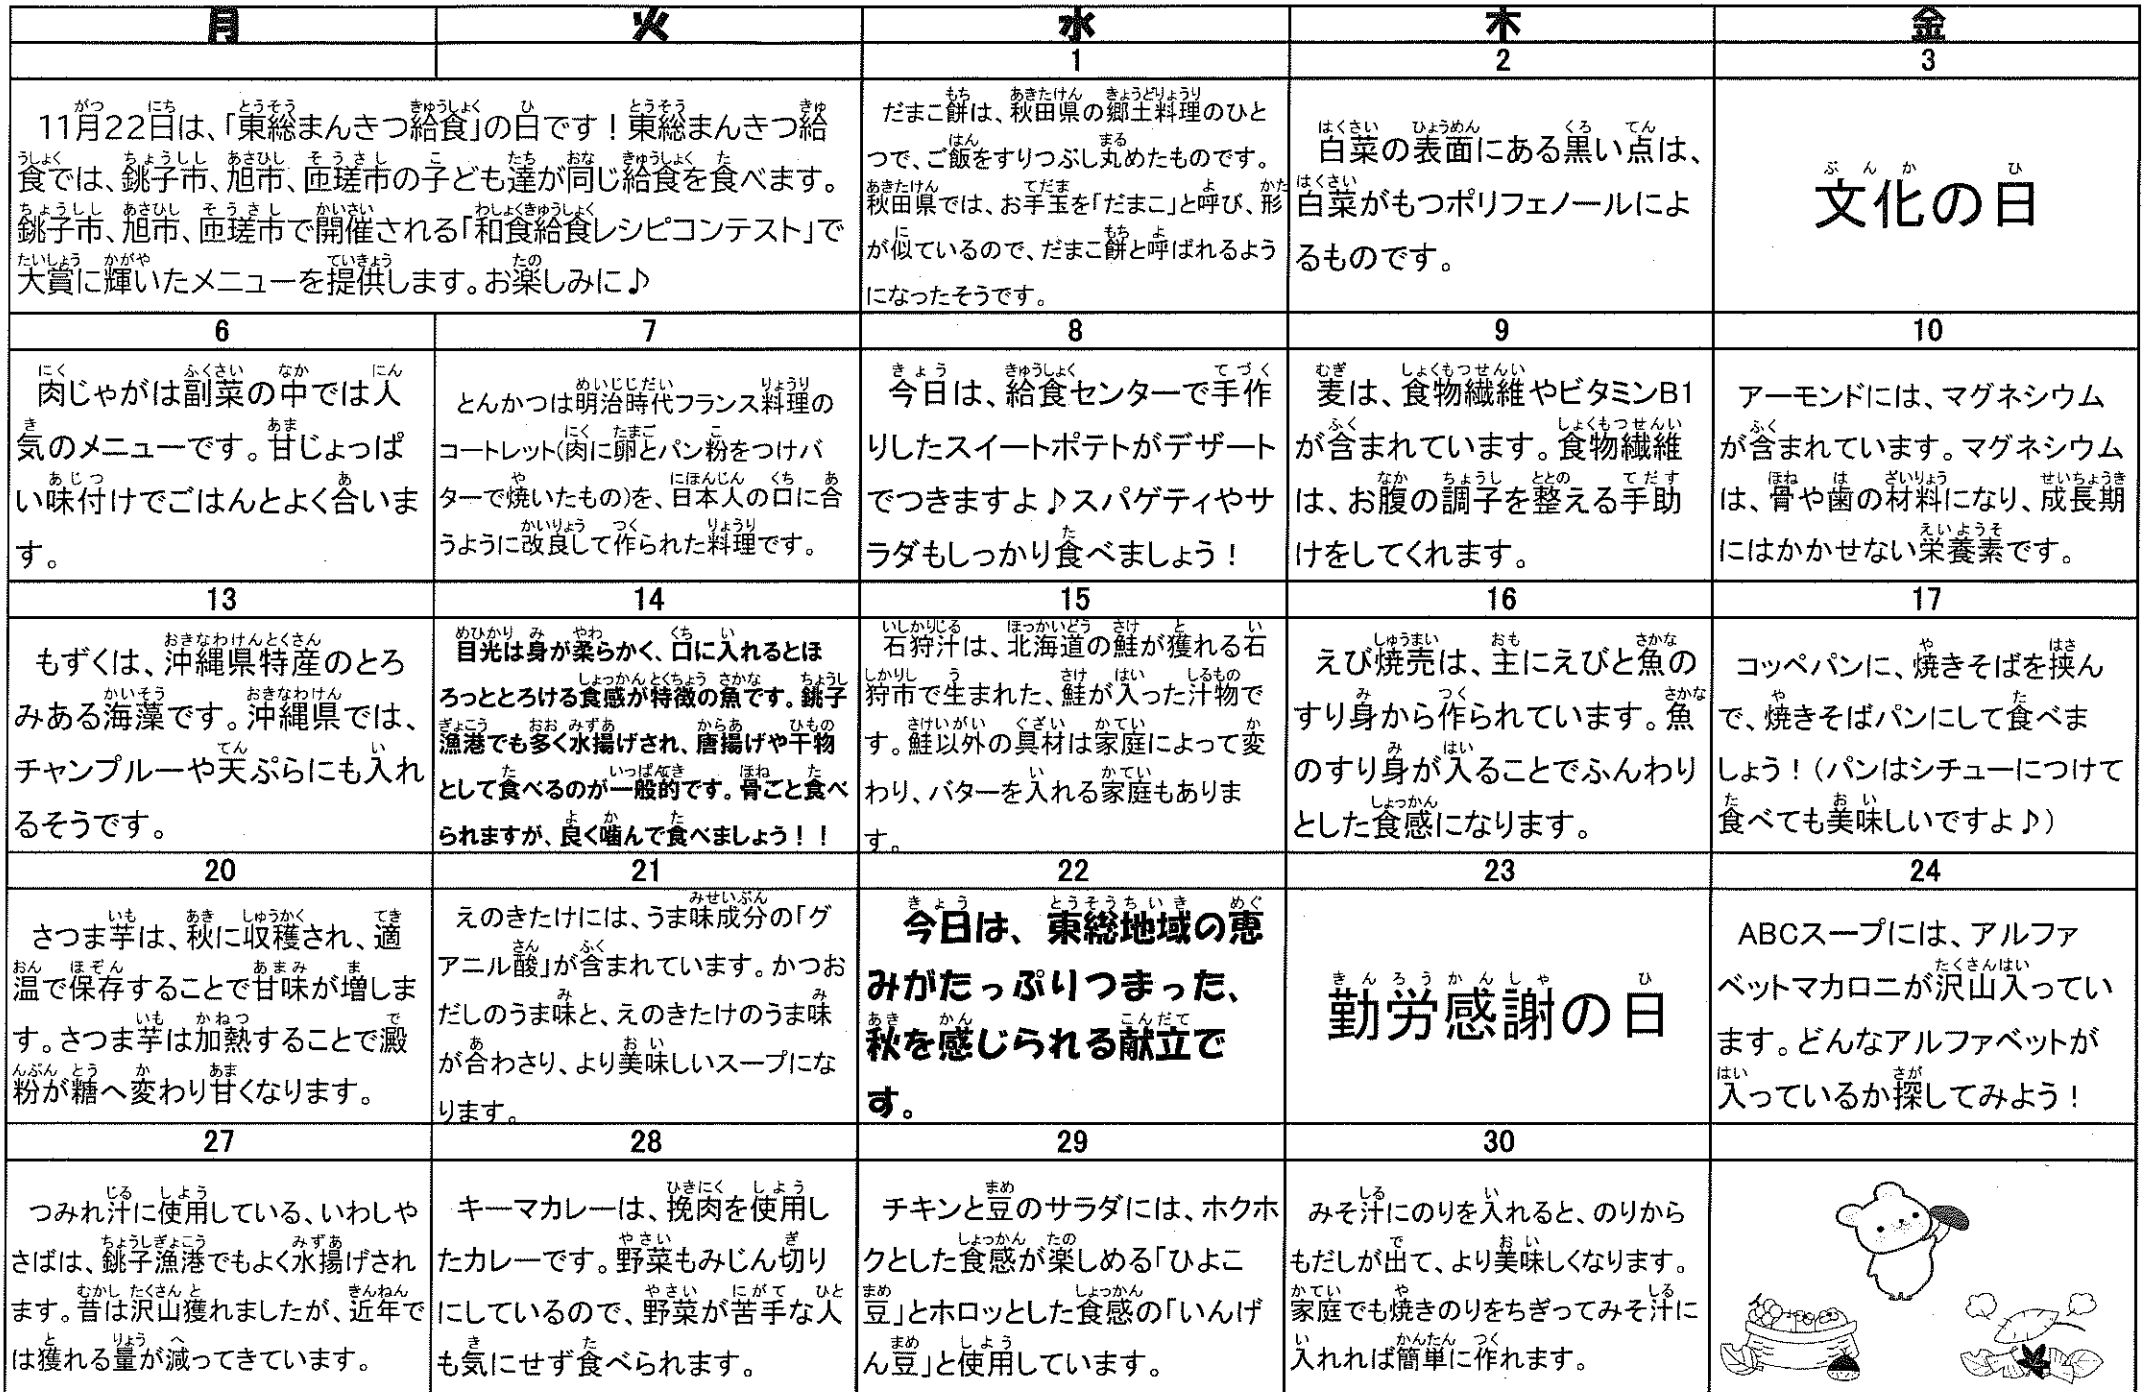 月 火 水 木 金
1 2 3
11月22日は、「東総まんきつ給食」の日です！東総まんきつ給
食では、銚子市、旭市、匝瑳市の子ども達が同じ給食を食べます。
銚子市、旭市、匝瑳市で開催される「和食給食レシピコンテスト」で
大賞に輝いたメニューを提供します。お楽しみに♪
だまこ餅は、秋田県の郷土料理のひと
つで、ご飯をすりつぶし丸めたものです。
秋田県では、お手玉を「だまこ」と呼び、形
が似ているので、だまこ餅と呼ばれるよう
になったそうです。
白菜の表面にある黒い点は、
白菜がもつポリフェノールによ
るものです。
文化の日
6 7 8 9 10
肉じゃがは副菜の中では人
気のメニューです。甘じょっぱ
い味付けでごはんとよく合いま
す。
とんかつは明治時代フランス料理の
コートレット(肉に卵とパン粉をつけバ
ターで焼いたもの)を、日本人の口に合
うように改良して作られた料理です。
今日は、給食センターで手作
りしたスイートポテトがデザート
でつきますよ♪スパゲティやサ
ラダもしっかり食べましょう！
麦は、食物繊維やビタミンB1
が含まれています。食物繊維
は、お腹の調子を整える手助
けをしてくれます。
アーモンドには、マグネシウム
が含まれています。マグネシウム
は、骨や歯の材料になり、成長期
にはかかせない栄養素です。
13 14 15 16 17
もずくは、沖縄県特産のとろ
みある海藻です。沖縄県では、
チャンプルーや天ぷらにも入れ
るそうです。
目光は身が柔らかく、口に入れるとほ
ろっととろける食感が特徴の魚です。銚子
漁港でも多く水揚げされ、唐揚げや干物
として食べるのが一般的です。骨ごと食べ
られますが、良く噛んで食べましょう！！
石狩汁は、北海道の鮭が獲れる石
狩市で生まれた、鮭が入った汁物で
す。鮭以外の具材は家庭によって変
わり、バターを入れる家庭もありま
す。
えび焼売は、主にえびと魚の
すり身から作られています。魚
のすり身が入ることでふんわり
とした食感になります。
コッペパンに、焼きそばを挟ん
で、焼きそばパンにして食べま
しょう！（パンはシチューにつけて
食べても美味しいですよ♪）
20 21 22 23 24
さつま芋は、秋に収穫され、適
温で保存することで甘味が増しま
す。さつま芋は加熱することで澱
粉が糖へ変わり甘くなります。
えのきたけには、うま味成分の「グ
アニル酸」が含まれています。かつお
だしのうま味と、えのきたけのうま味
が合わさり、より美味しいスープにな
ります。
今日は、東総地域の恵
みがたっぷりつまった、
秋を感じられる献立で
す。
勤労感謝の日
ABCスープには、アルファ
ベットマカロニが沢山入ってい
ます。どんなアルファベットが
入っているか探してみよう！
27 28 29 30
つみれ汁に使用している、いわしや
さばは、銚子漁港でもよく水揚げされ
ます。昔は沢山獲れましたが、近年で
は獲れる量が減ってきています。
キーマカレーは、挽肉を使用し
たカレーです。野菜もみじん切り
にしているので、野菜が苦手な人
も気にせず食べられます。
チキンと豆のサラダには、ホクホ
クとした食感が楽しめる「ひよこ
豆」とホロッとした食感の「いんげ
ん豆」と使用しています。
みそ汁にのりを入れると、のりから
もだしが出て、より美味しくなります。
家庭でも焼きのりをちぎってみそ汁に
入れれば簡単に作れます。